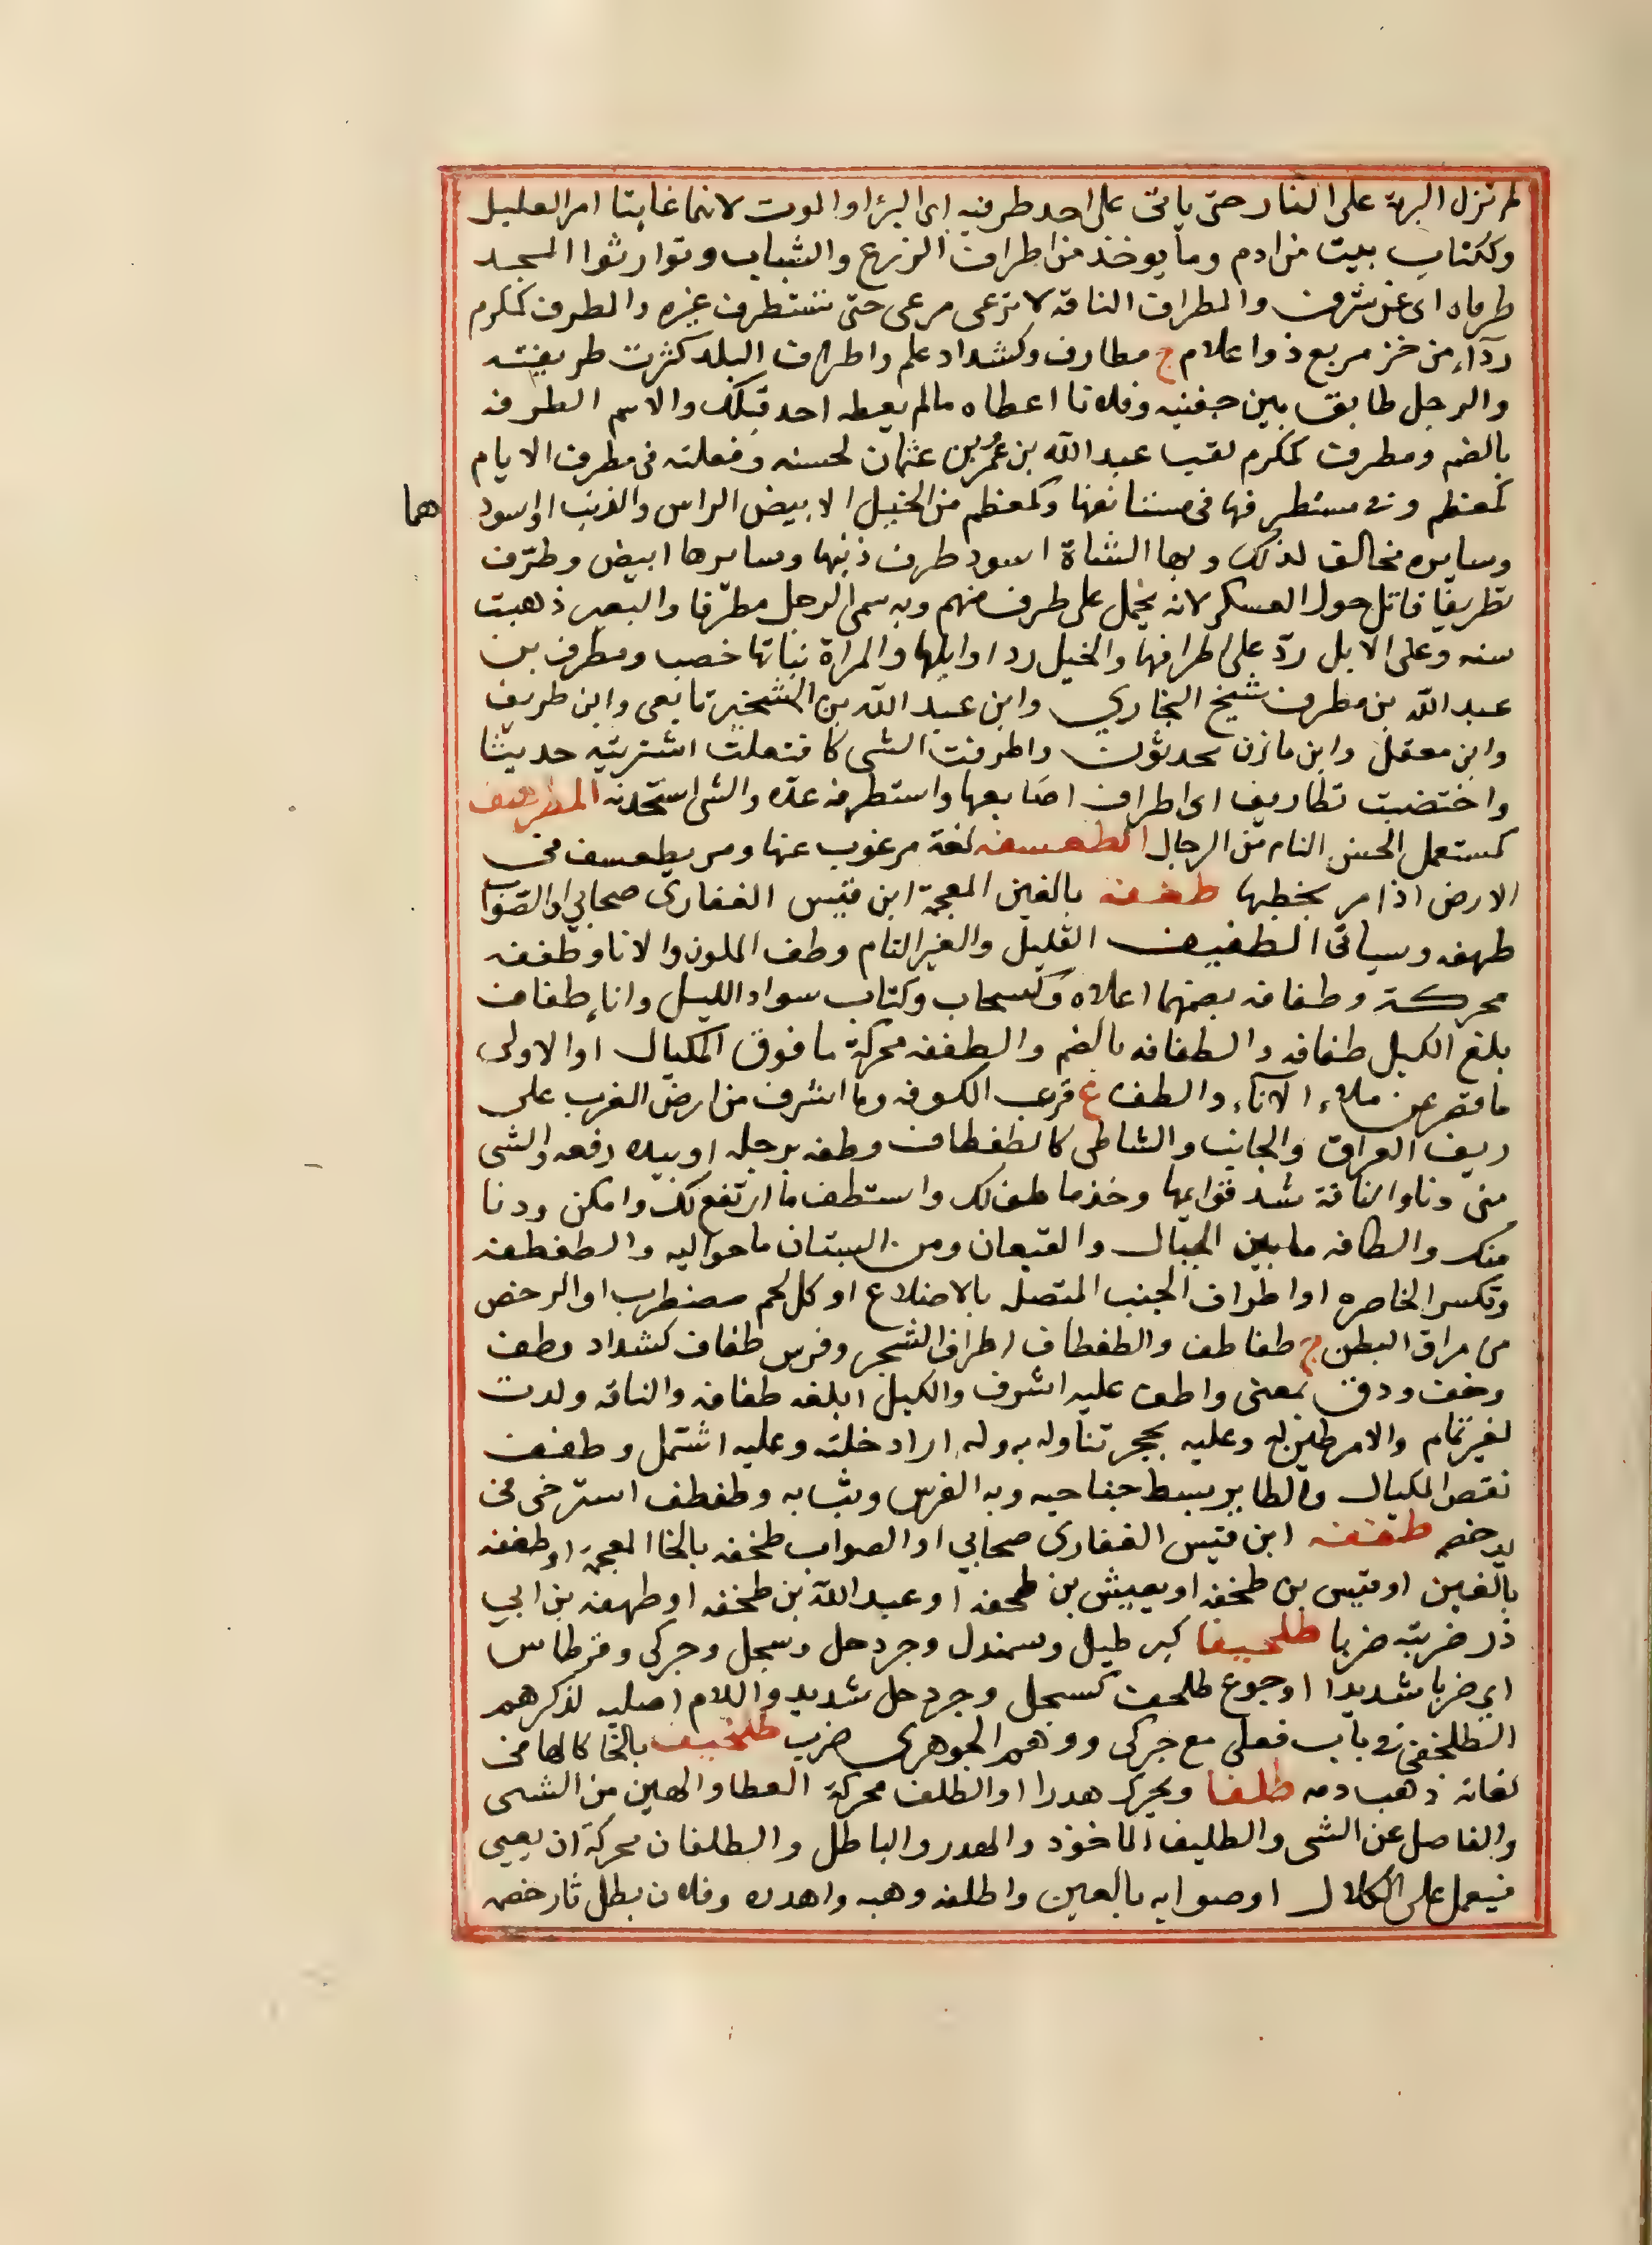 لم تزل البرمة على النار حتى ياتى على احد طرفيه اى البرؤ او الموت لانهما غايتا امر العليل
وككتاب بيت من ادم وما يوخذ من اطراف الزرع والشباب وتوارثوا المجد
طرفاه اى عن شرف والمطراف الناقة لا ترعى مرعى حتى تستطرف غيره والمطرف كمكرم
ردآء من خز مربع ذو اعلام ج مطارف وكشداد علم واطرف البلد كثرت طريفته
والرجل طابق بين جفنيه وفلانا اعطاه مالم يعطه احد قبلك والاسم الطرفه
بالضم ومطرف كمكرم لقب عبد الله بن عمرو بن عثمان لحسنه وفعلته فى مطرف الايام
كمعظم وفى مستطرفها فى مستانفها وكمعظم من الخيل الابيض الراس والذنب او اسود هما
وسايره مخالف لذلك وبها الشاة اسود طرف ذنبها وسايرها ابيض وطرّف
تطريفا قاتل حول العسكر لانه يحمل على طرف منهم وبه سمى الرجل مطرّفا والبعير ذهبت
سنه وعلى الابل ردّ على اطرافها والخيل رد اوايلها والمراة بنانها خصب ومطرف بن
عبد الله بن مطرف شيخ البخاري وابن عبد الله بن الشخير تابعى وابن طريف
وابن معقل وابن مازن محدثون واطرفت الشى كافتعلت اشتريته حديثا
واختضبت تطاريف اى اطراف اصابعها واستطرفه عدّه والشى استحدثه المطرهف
كمستعمل الحسن التام من الرجال الطعسفه لغة مرغوب عنها ومر يطعسف فى
الارض اذا مر يخطبها طغفه بالغين المعجمة ابن قيس الغفارى صحابى او الصواب
طهفه وسياتى الطفيف القليل والغير التام وطف الملوك والانا وطففه
محركة وطفافه بضمهما اعلاه وكسحاب وكتاب سواد الليل واناء طفاف
بلغ الكيل طفافه والطفافه بالضم والطففه محركة ما فوق المكيال او الاولى
ما قصر عن ملاء الانآء والطف ع قرب الكوفه وما اشرف من ارض العرب على
ريف العراق والجانب والشاطى كالطفطاف وطفه برجله او بيده رفعه والشى
منى دنا والناقة شد قوايمها وخذ ما طف لك واستطف ما ارتفع لك وامكن ودنا
منك والطافه ما بين الجبال والقيعان ومن البستان ما حواليه والطفطفه
وتكسر الخاصره او اطراف الجنب المتصله بالاضلاع او كل لحم مضطرب او الرخص
من مراق البطن ج طفاطف والطفطاف اطراف الشجر وفرس طفاف كشداد وطف
وخف ودف بمعنى واطف عليه اشرف والكيل ابلغه طفافه والناقه ولدت
لغير تمام والامر طبن له وعليه بحجر تناوله به وله اراد ختله وعليه اشتمل وطفف
نقص المكيال والطاير بسط جناحيه وبه الفرس وثب به وطفطف استرخى فى
يد خصمه طقفه ابن قيس الغفارى صحابي او الصواب طخفه بالخا المعجمة او طغفه
بالغين او قيس بن طخفه او يعيش بن طخفه او عبد الله بن طخفه او طهفه بن ابي
ذر ضربته ضربا طلحيفا كبرطيل وسمندل وجردحل وسجل وجركى وقرطاس
اي ضربا شديدا او جوع طلحف كسجل وجردحل شديد واللام اصليه لذكرهم
الطلحفى فى باب فعلى مع جركى ووهم الجوهرى ضرب طلخيف بالخا كالحا فى
لغاته ذهب دمه طلفا ويحرك هدرا او الطلف محركة العطا والهين من الشى
والفاصل عن الشى والطليف الماخوذ والهدر والباطل والطلفان محركة ان يعيى
فيعمل على الكلال او صوابه بالعين واطلفه وهبه واهدره وفلان بطل ثار خصمه